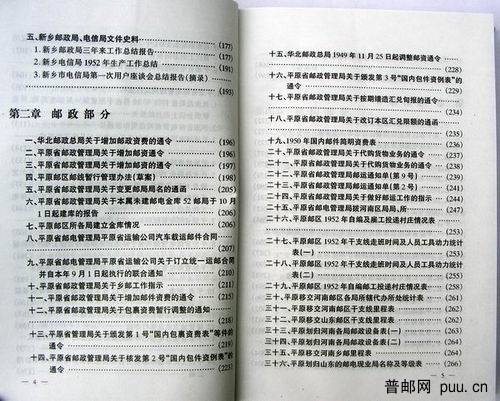 五、新乡邮政局、电信局文件史料 (177)
1.新乡邮政局三年来工作总结报告 (177)
2.新乡电信局 1952 年生产工作总结 (191)
3.新乡市电信局第一次用户座谈会总结报告(摘录)
(193)
第二章 邮政部分
一、华北邮政总局关于增加邮政资费的通令 (196)
二、平原省邮政管理局关于增加邮资的通令 (197)
三、平原省邮政管理局关于增加邮资的通令 (198)
四、平原邮区邮线暂行管理办法(草案) (198)
五、平原省邮政管理局关于变更邮局局名的通函 (205)
六、平原省邮政管理局关于本属未建邮电金库 52 邮局于 10 月
1 日起建库的报告 (206)
七、平原邮区所各局建立金库情况 (206)
八、平原省邮电管理局平原省运输公司汽车载运邮件合同
(207)
九、平原省邮电管理局平原省运输公司关于订立统一运邮合同
并自本年 9 月 1 日起执行的联合通知 (210)
十、平原省邮政管理局关于乡邮工作指示 (213)
十一、平原省邮政管理局关于增加邮件资费的通令 (215)
十二、平原省邮政管理局关于包裹资费暂行调整的通知
(218)
十三、平原省管理局关于颁发第 1 号"国内包裹资费表"等件的
通令 (219)
十四、平原省邮政管理局关于核发第 2 号"国内包件资例表"的
通令 (223)
— 4 —
十五、华北邮政总局 1949 年 11 月 25 日起调整邮资通令
(228)
十六、平原省邮政管理局关于颁发第 3 号"国内包件资例表"的
通令 (229)
十七、平原省邮政管理局关于按期缮造汇兑旬报的通令
(234)
十八、平原省邮政管理局关于改订本区汇兑限额的通函
(235)
十九、1950 年国内邮件简明资费表 (237)
二十、平原省邮政管理局关于代购货物业务的通令
二十一、平原省邮政管理局关于代购货物业务的通令
二十二、平原省邮政管理局邮运通知单(第 9 号)
二十三、平原省邮政管理局邮运通知单(第 2 号)
二十四、平原省邮政管理局关于做好邮运工作的指示
二十五、平原省邮电管理局拨河南区局、所
二十六、平原邮区 1952 年自编及雇工投递村庄情况表
二十七、平原邮区 1952 年干支线走班时间及人员工具动力统计
表(一)
二十八、平原邮区 1952 年干支线走班时间及人员工具动力统计
表(二)
二十九、平原邮区 1952 年自编投递村庄情况表 (261)
三十、平原移交河南邮区各局所辖代办所处统计表 (261)
三十一、平原移交河南邮区干支线里程表 (262)
三十二、平原移交山东邮区干支线里程表 (263)
三十三、平原划归河南各局邮政设备表(一) (264)
三十四、平原划归河南各局邮政设备表(二) (264)
三十五、平原移交河南乡邮里程表 (264)
三十六、平原划归山东的邮电现业局名称及等级表
— 5 —
普邮网 puu.cn